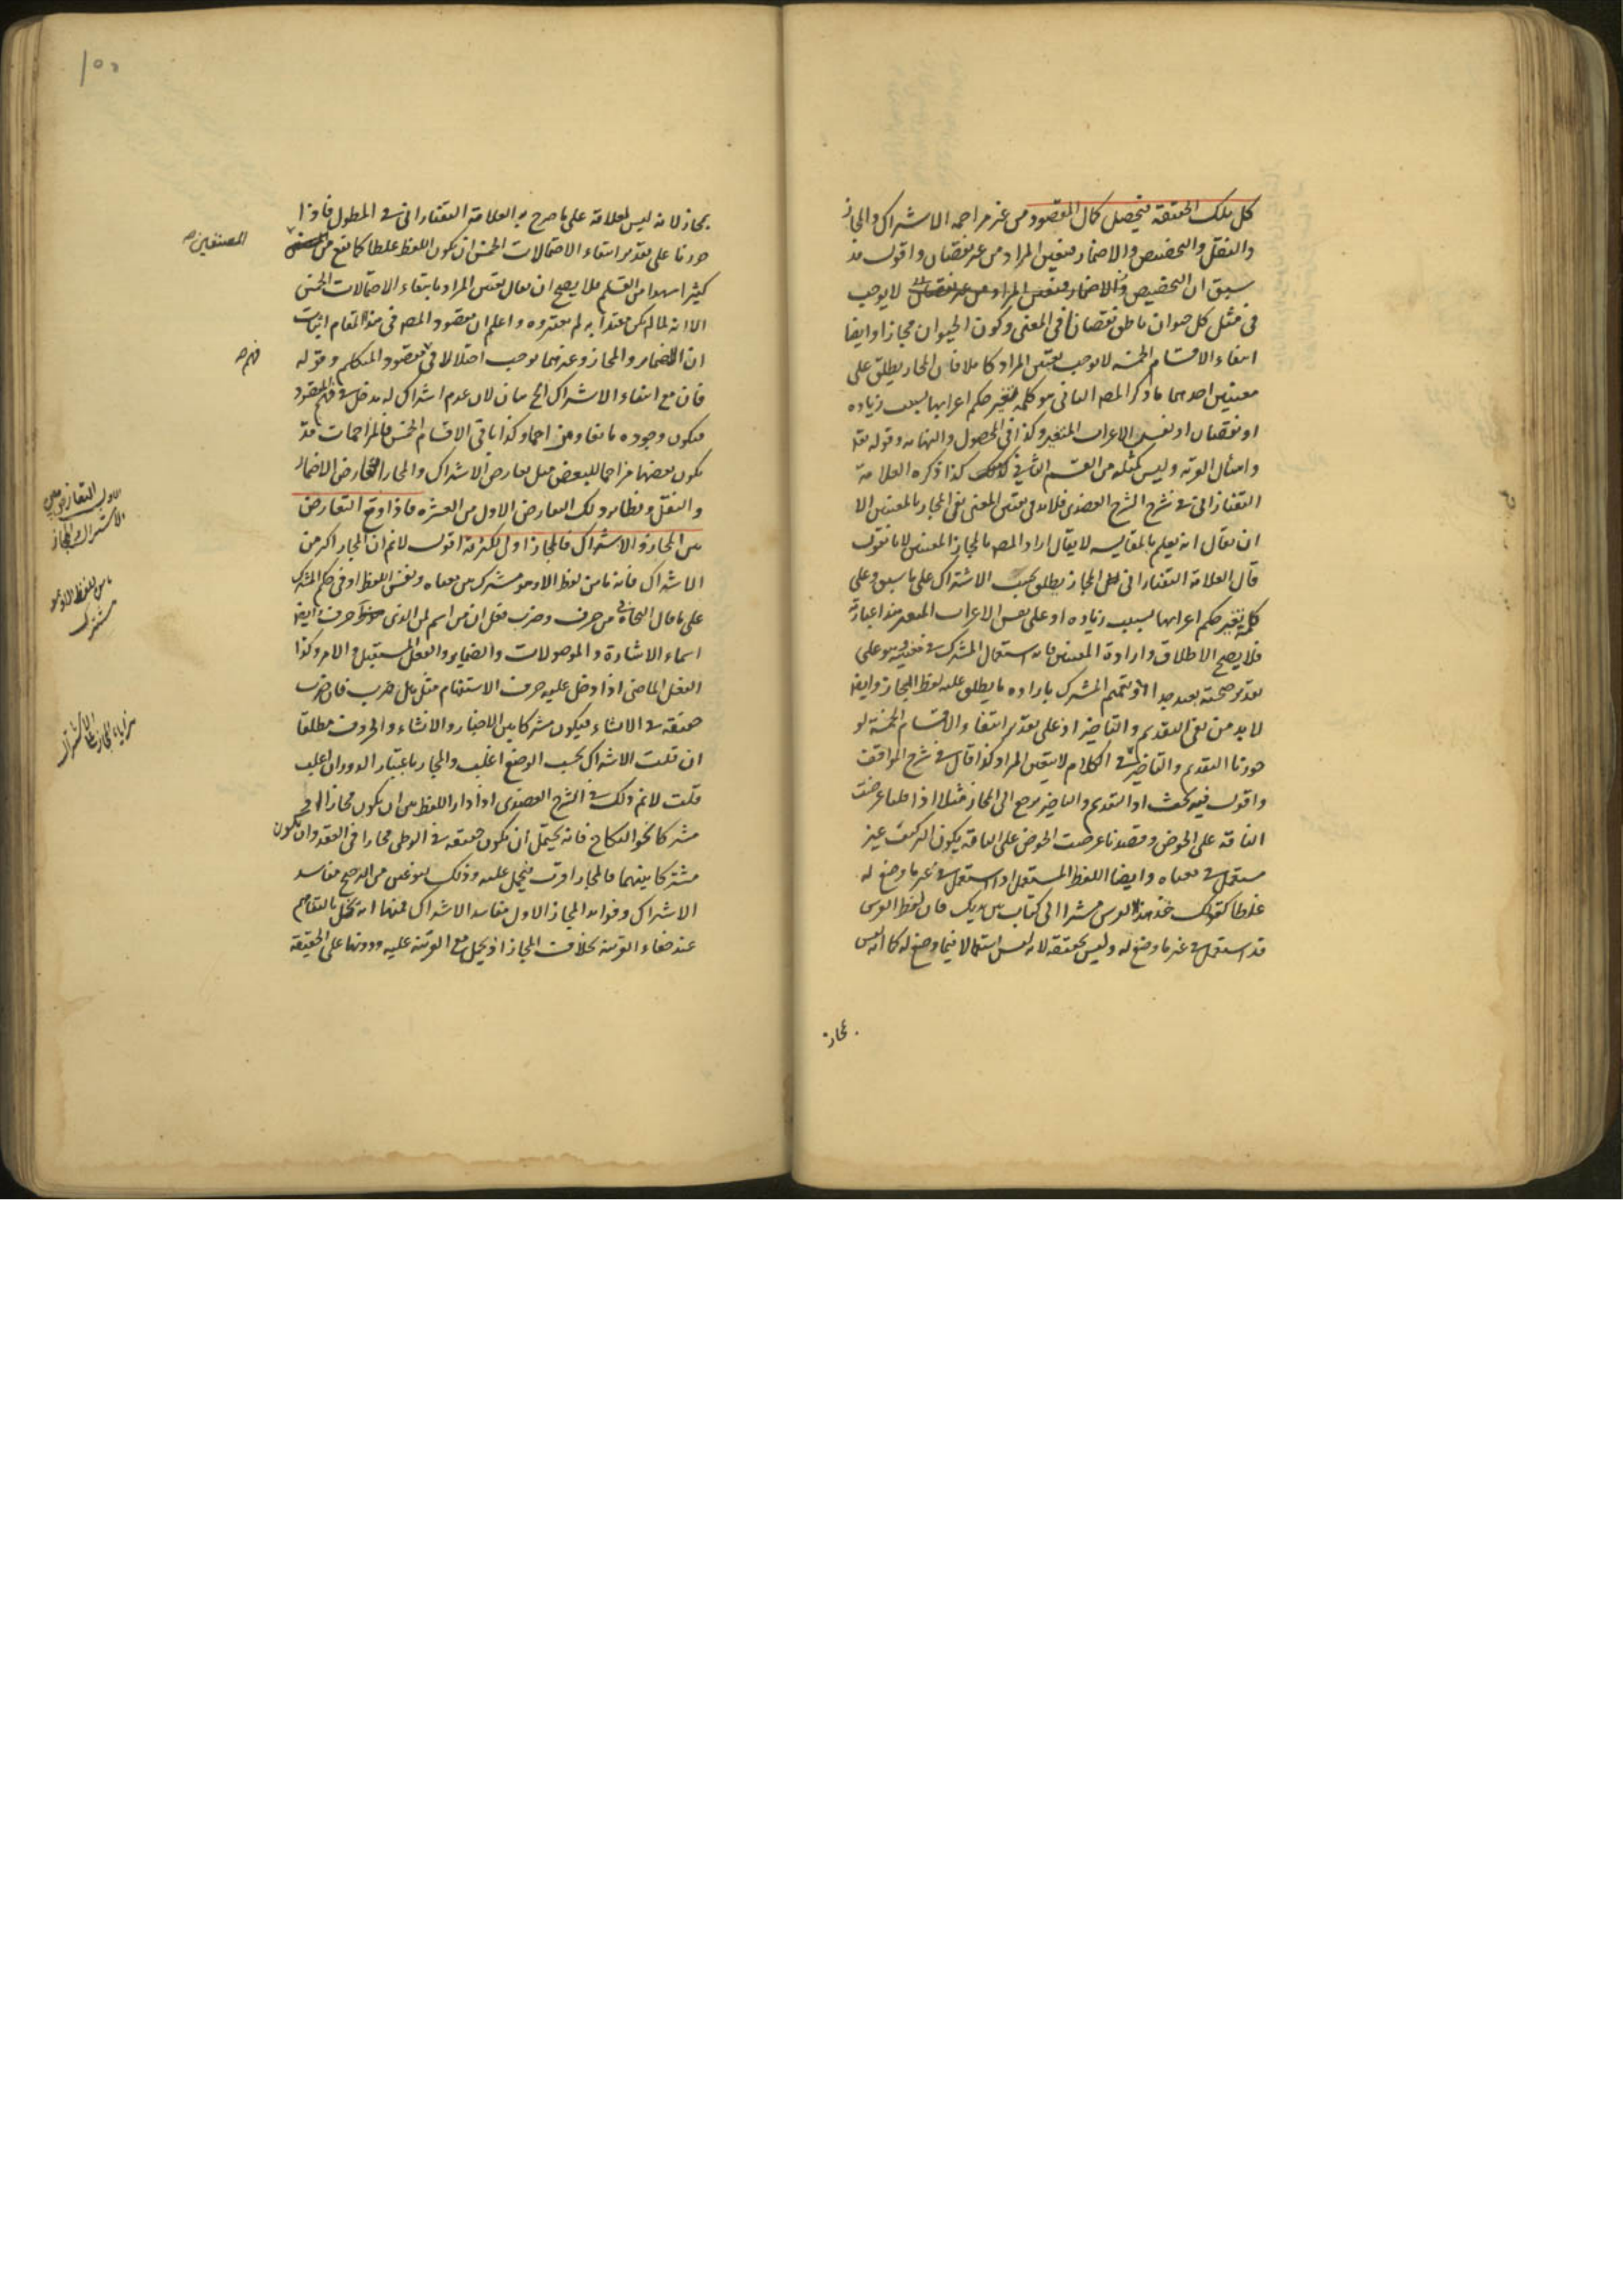 كل تلك الحقيقة فيحصل كمال المقصود من غير مزاحمه الاشتراك والمجاز
والنقل والتخصيص والاضمار فيتعين المراد من غير نقصان واقول قد
سبق ان التخصيص والاضمار لا يوجب
فى مثل كل حيوان ناطق نقصانا فى المعنى وكون الحيوان مجازا وايضا
انتفاء الاقسام الخمسه لا يوجب تعيين المراد كاملا فان المجاز يطلق على
معنيين احدهما ما ذكر المص الثانى هو كلمة تغير حكم اعرابها بسبب زياده
او نقصان او نفس الاعراب المتغير وكذا فى المحصول والنهايه وقوله تع
واسئل القرية وليس كمثله من القسم الثانى كذا ذكره العلامة
التفتازانى فى شرح الشرح العضدى فلابد فى تعيين المعنى نفى المجاز بالمعنيين الا
ان يقال انه يعلم بالمقايسه لا يقال اراد المص بالمجاز المعنيين لانا نقول
قال العلامة التفتازانى المجاز يطلق بحسب الاشتراك على ما سبق وعلى
كلمة تغير حكم اعرابها بسبب زياده او على نفس الاعراب المتغير هذا عبارته
فلا يصح الاطلاق وارادة المعنيين فانه استعمال المشترك فى معنييه وهو على
تقدير صحته بعيد جدا او بتعميم المشترك بارادة ما يطلق عليه لفظ المجاز وايضا
لا بد من نفى التقديم والتاخير اذ على تقدير انتفاء الاقسام الخمسة لو
جوزنا التقديم والتاخير فى الكلام لا يتعين المراد كذا قال فى شرح المواقف
واقول فيه بحث اذ التقديم والتاخير يرجع الى المجاز مثلا اذا قلنا عرضت
الناقة على الحوض وقصدنا عرضت الحوض على الناقه يكون التركيب غير
مستعمل فى معناه وايضا اللفظ المستعمل اذا استعمل فى غير ما وضع له
غلطا كقولك خذ هذا الفرس مشيرا الى كتاب بين يديك فان لفظ الفرس
قد استعمل فى غير ما وضع له وليس بحقيقه لانه ليس استعمالا فيما وضع له كما انه ليس
بمجاز
بمجاز لانه ليس لعلاقة على ما صرح به العلامة التفتازانى فى المطول فاذا
جوزنا على تقدير انتفاء الاحتمالات الخمس ان يكون اللفظ غلطا كما يقع من
المصنفين صح
كثيرا سهوا من القلم فلا يصح ان يقال يتعين المراد بانتفاء الاحتمالات الخمس
الا انه لما لم يكن معتدا به لم يعتبروه واعلم ان مقصود المص فى هذا المقام اثبات
ان الاضمار والمجاز وغيرهما يوجب اختلالا فى مقصود المتكلم وقوله
فهم صح
فان مع انتفاء الاشتراك الخ بيان لان عدم اشتراك له مدخل فى فهم المقصود
فيكون وجوده مانعا ومزاحما وكذا باقى الاقسام الخمس فالمزاحمات قد
يكون بعضها مزاحما للبعض مثل تعارض الاشتراك والمجاز وتعارض الاضمار
والنقل ونظاير ذلك التعارض الاول من العشره فاذا وقع التعارض
الاول التعارض بين
الاشتراك والمجاز
بين المجاز والاشتراك فالمجاز اولى لكثرته اقول لا نم ان المجاز اكثر من
الاشتراك فانه ما من لفظ الا وهو مشترك بين معناه ونفس اللفظ او فى حكم المشترك
ما من لفظ الا وهو
مشترك
على ما قال النحاة فى من حرف وضرب فعل ان من اسم لمن الذى حرف وايضا
اسماء الاشارة والموصولات والضماير والفعل المستقبل والامر وكذا
الفعل الماضى اذا دخل عليه حرف الاستفهام مثل هل ضرب فان ضرب
حقيقه فى الانشاء فيكون مشتركا بين الاخبار والانشاء والحروف مطلقا
ان قلت الاشتراك بحسب الوضع اغلب والمجاز باعتبار الدوران اغلب
قلت لا نم ذلك فى الشرح العضدى اذا دار اللفظ بين ان يكون مجازا او
مشتركا نحو النكاح فانه يحتمل ان يكون حقيقه فى الوطى مجازا فى العقد وان يكون
مشتركا بينهما فالمجاز اقرب فيحمل عليه وذلك لنوعين من الترجيح مفاسد
الاشتراك وفوايد المجاز الاول مفاسد الاشتراك فمنها انه يخل بالتفاهم
عند خفاء القرينه بخلاف المجاز اذ يحمل مع القرينه عليه ودونها على الحقيقة